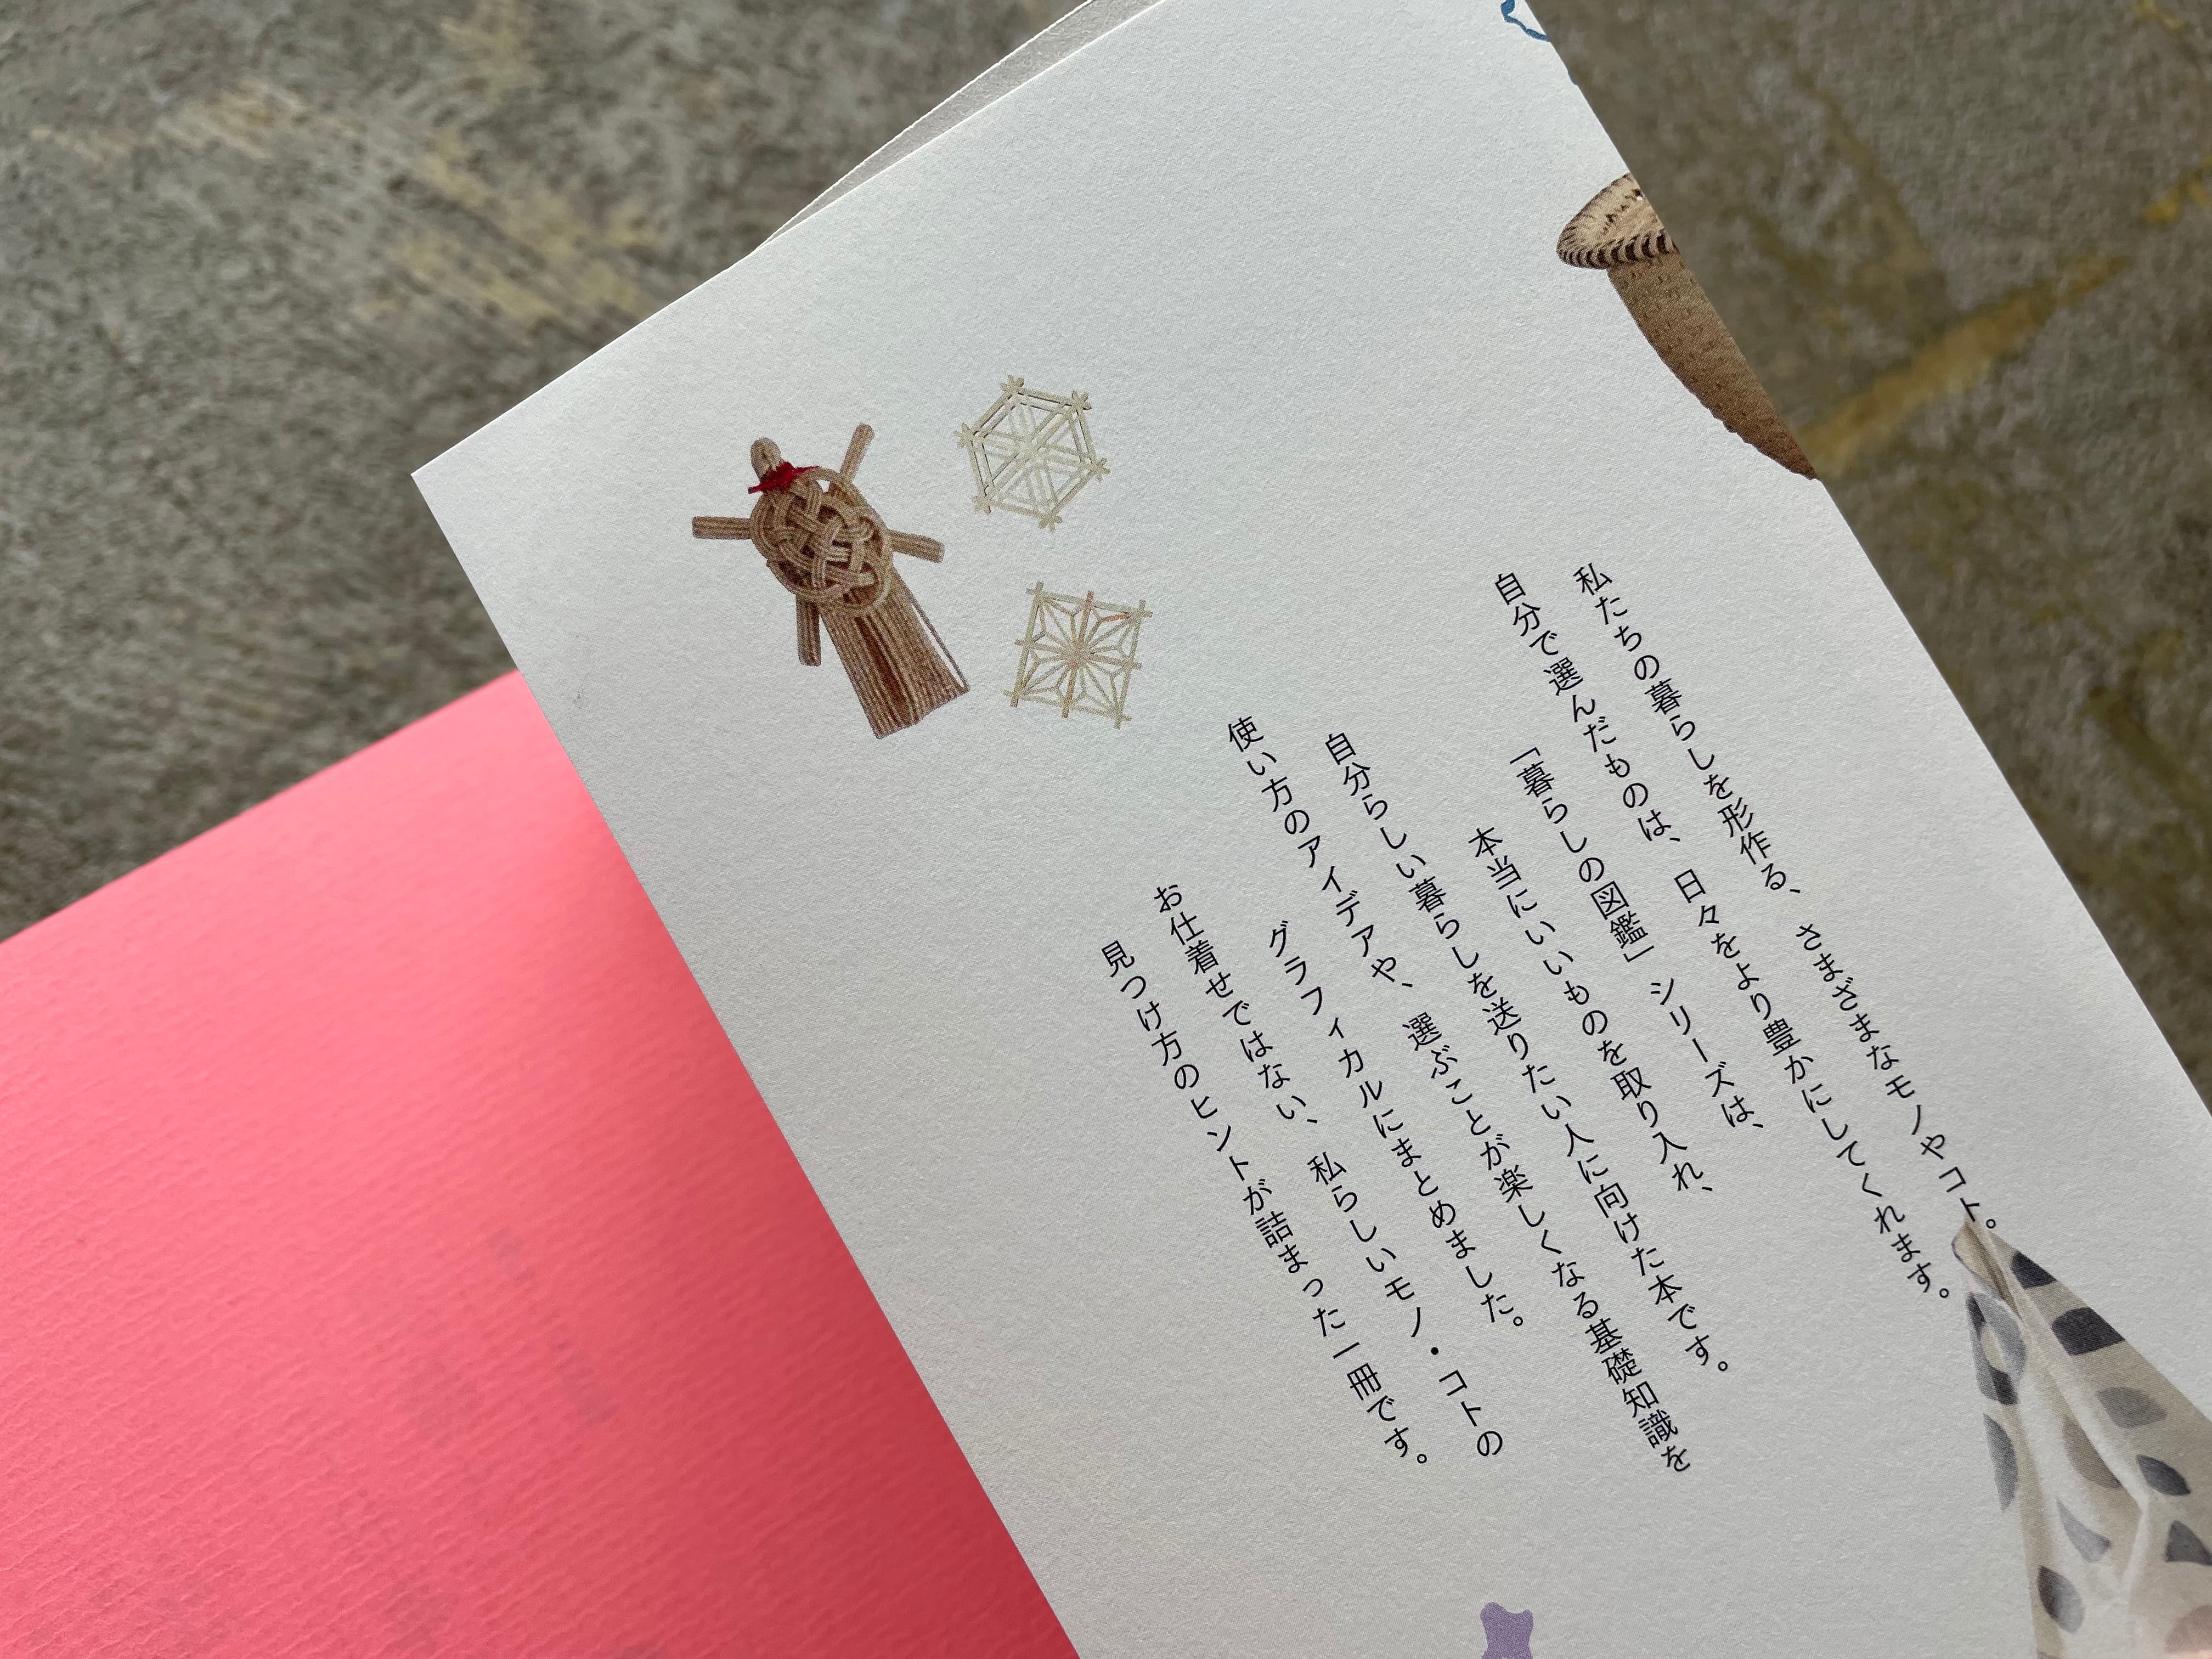 私たちの暮らしを形作る、さまざまなモノやコト。
自分で選んだものは、日々をより豊かにしてくれます。
「暮らしの図鑑」シリーズは、
本当にいいものを取り入れ、
自分らしい暮らしを送りたい人に向けた本です。
使い方のアイデアや、選ぶことが楽しくなる基礎知識を
グラフィカルにまとめました。
お仕着せではない、私らしいモノ・コトの
見つけ方のヒントが詰まった一冊です。